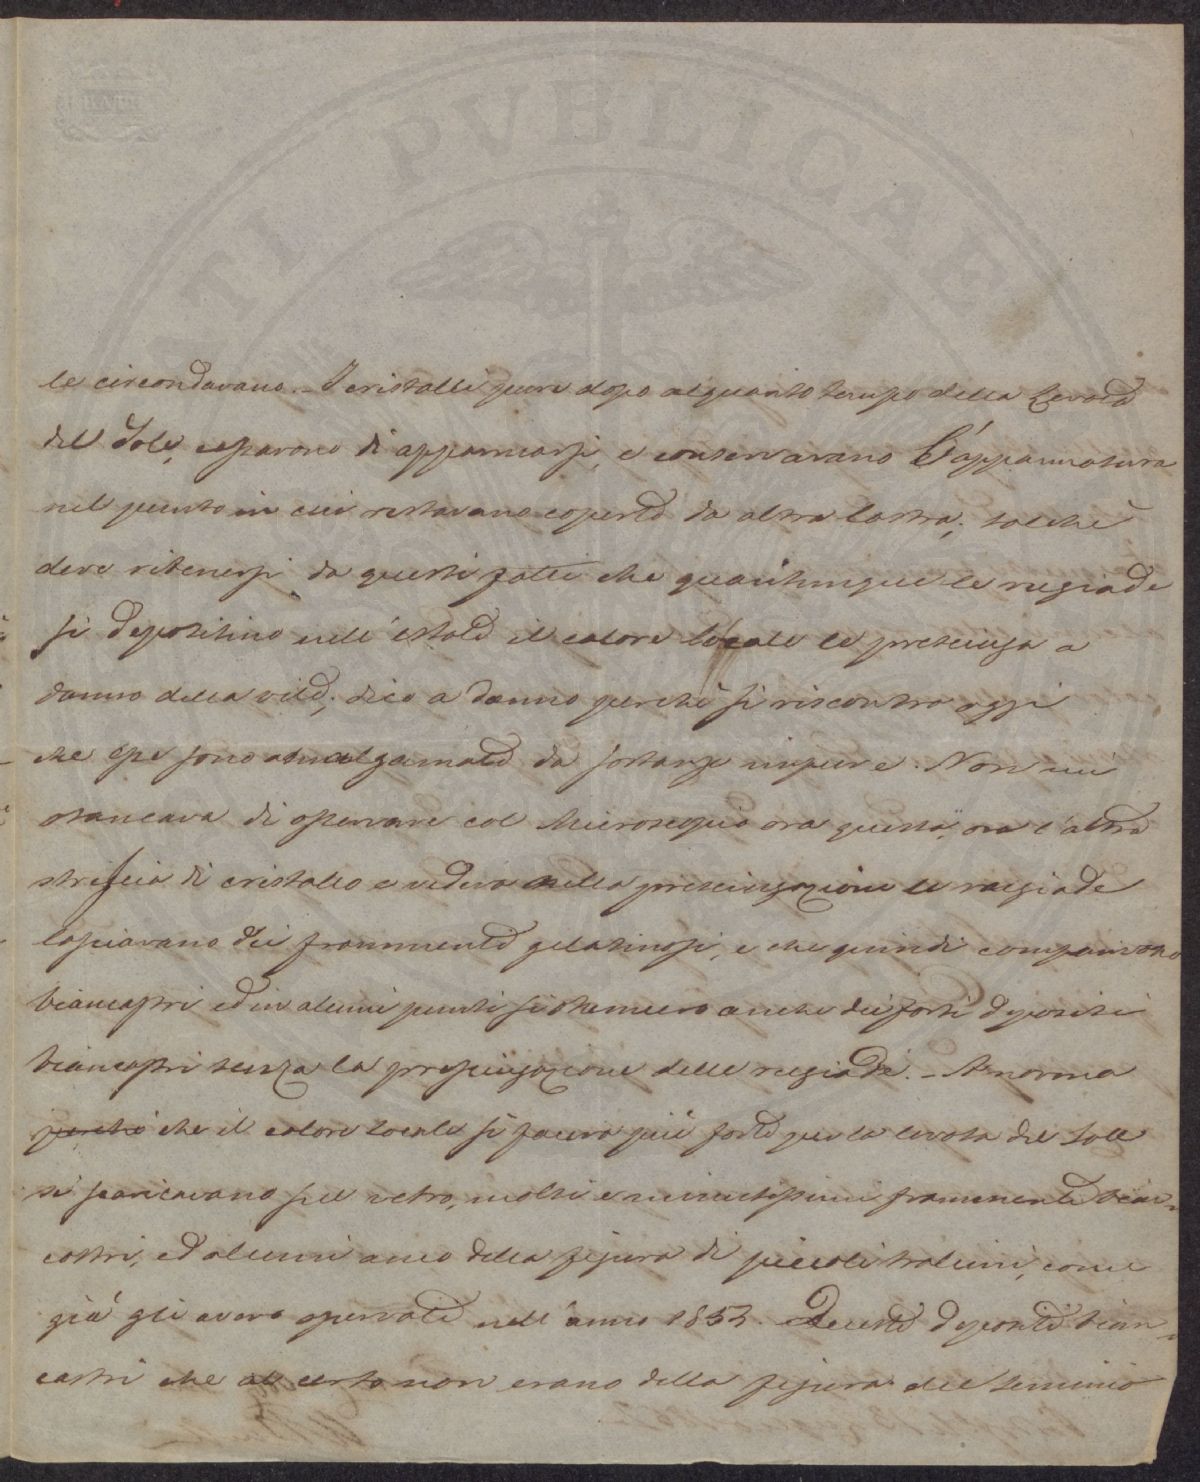 TI PVBLICAE
le circondavano. I cristalli pure dopo alquanto tempo della levata
del Sole, cessarono di appannarsi, e conservarano l'appannatura
nel punto in cui restavano coperti da altra lastra; talchè
deve ritenersi da questi fatti che quantunque le rugiade
si depositino nell'estate il calore locale le prosciuga a
danno della vite; dico a danno perchè si riscontra oggi
che esse sono amalgamate da sostanze impure. Non mi
stancava di osservare col Microscopio ora questa, ora l'altra
striscia di cristallo e vedeva nella prosciugazione le rugiade
lasciavano dei frammenti gelatinosi, e che quindi comparivano
biancastri ed in alcuni punti si ottennero anche dei forti depositi
biancastri senza la prosciugazione delle rugiade. A norma
perchè che il calore locale si faceva più forte per la levata del Sole
si scaricavano sul vetro, molti e minutissimi frammenti bian-
castri, ed alcuni anco della figura di piccoli tralcini, come
già gli aveva osservati nell'anno 1853. Questi depositi bian-
castri che al certo non erano della figura del seminio